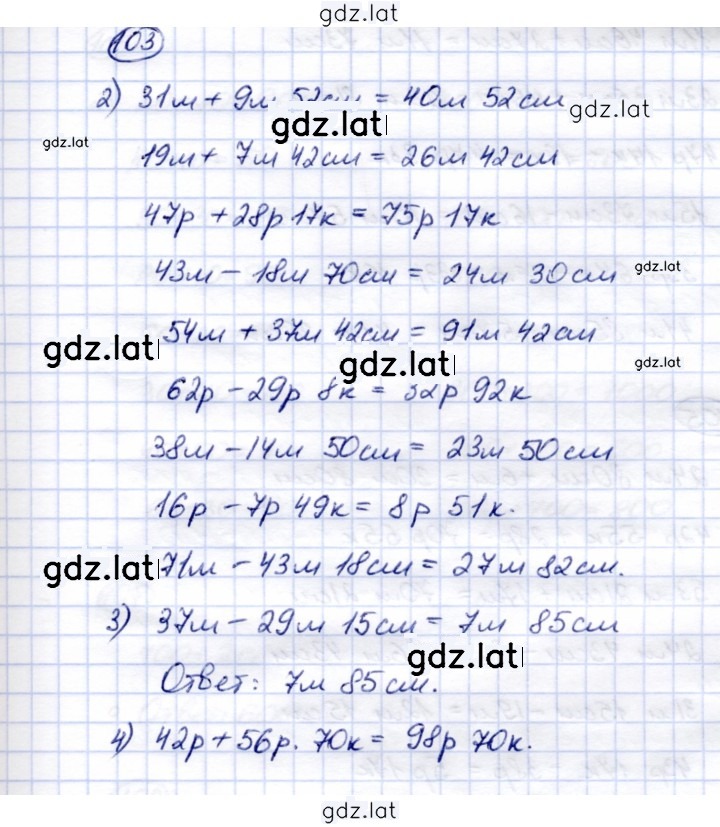 gdz.lat
103
2) 31м + 9м 52см = 40м 52см
gdz.lat
gdz.lat
gdz.lat
19м + 7м 42см = 26м 42см
47р + 28р 17к = 75р 17к
43м - 18м 70см = 24м 30см
gdz.lat
54м + 37м 42см = 91м 42см
gdz.lat
gdz.lat
gdz.lat
62р - 29р 8к = 32р 92к
38м - 14м 50см = 23м 50см
16р - 7р 49к = 8р 51к.
gdz.lat
71м - 43м 18см = 27м 82см.
3) 37м - 29м 15см = 7м 85см
gdz.lat
Ответ: 7м 85см.
4) 42р + 56р. 70к = 98р 70к.
gdz.lat